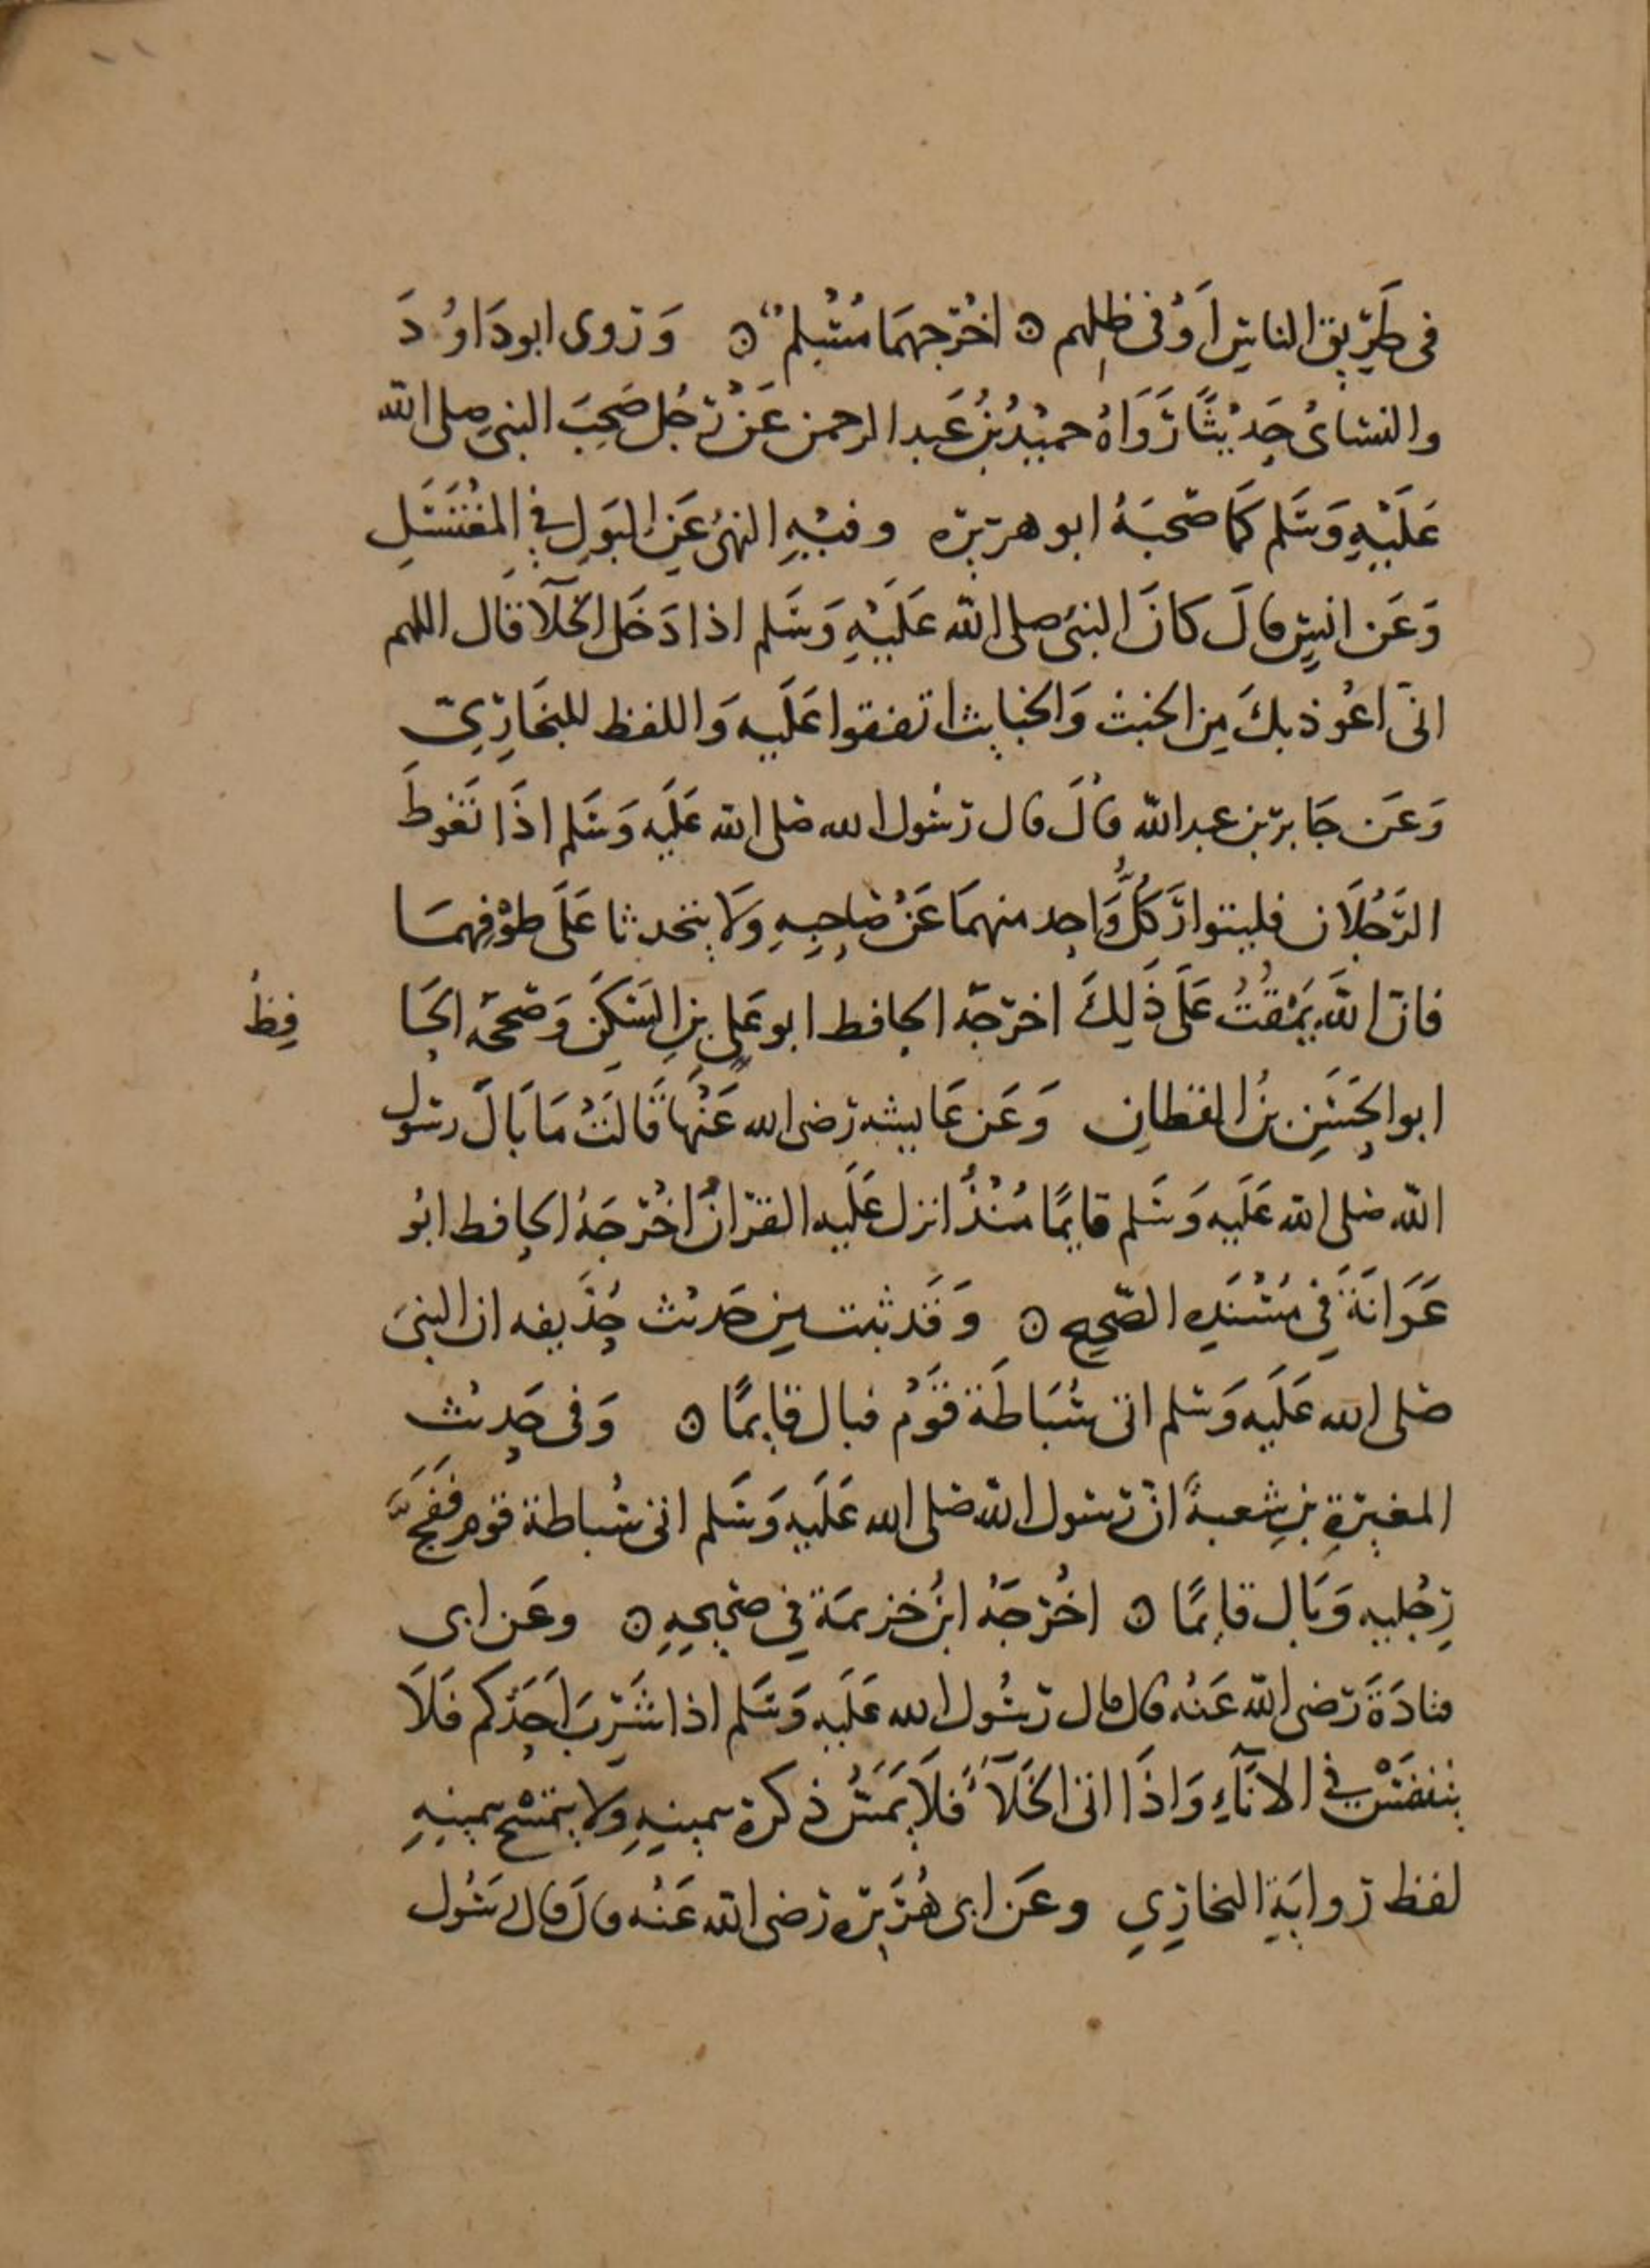 في طَرِيق الناسِ أَوْ في ظِلهم ۝ اخْرَجهمَا مُسْلم ۝ وَرَوى ابو دَاوُدَ
والنسَائ حَدِيْثًا رَوَاهُ حميْدُ بنُ عَبد الرحمن عَنْ رَجُلٍ صَحِبَ النبي صلى الله
عَلَيْهِ وَسَلم كَمَا صَحبَهُ ابو هريره وفيْهِ النهىُ عَنِ البَولِ في المغْتَسَلِ
وَعَن انسٍ قالَ كانَ النبىُ صلى الله عَلَيْهِ وَسَلم اذا دَخَل الخَلَآ قَال اللهم
انىّ اعُوذ بكَ مِن الخبث وَالخبايث اتفقوا عَلَيه وَاللفظ للبخَارِيّ
وَعَن جَابر بن عبد الله قالَ قال رسُول الله صَلى الله عَلَيه وَسَلم اذَا تَغَوطَ
الرَّجُلَان فليتوارَ كُلُّ وَّاحِد منهمَا عَنْ صَاحِبِهِ وَلَا يتحدثا عَلَى طَوْفِهمَا
فانّ اللهَ يَمْقُتُ عَلَى ذَلِكَ اخرَجَهُ الحافظ ابو عَلى بن السَكَنِ وَصَححَهُ الحَا
فِظُ
ابو الحَسَنِ بنُ القطانِ وَعَن عَايشه رَضى الله عَنْهَا قَالَتْ مَا بَالَ رسُول
الله صَلى الله عَلَيه وَسَلم قايمًا مُنْذُ انزل عَلَيه القرْانُ اخْرَجَهُ الحافظ ابُو
عَوَانَةَ فِي مُسْنَدِهِ الصّحِيح ۝ وَقَد ثبت مِن حَديث حُذَيفه ان النبىَ
صَلى الله عَلَيه وَسَلم اتى سُبَاطَة قَوْم فبال قايمًا ۝ وَفي حَدِيث
المغيرةِ بن شعبة انّ رسول الله صَلى الله عَلَيه وَسَلم اتى سُباطة قوم فَفَحَّجَ
رِجْليه وَبَال قايمًا ۝ اخْرَجَهُ ابنُ خزيمَة فِي صَحِيحِهِ ۝ وعَن ابى
قتادَةَ رَضى الله عَنْهُ قال قال رسُول الله عَلَيه وَسَلم اذا شَرِبَ احَدكم فَلَا
يتنفسْ فِي الانَآءِ وَاذَا اتى الخَلَآءَ فَلَا يَمَسَّ ذكره بيمينِهِ وَلا يتمَسْح بيمينِهِ
لفظ رِوايَةِ البخارِيِ وعَن ابى هُرَيْره رَضى الله عَنْهُ قالَ قال رسُول